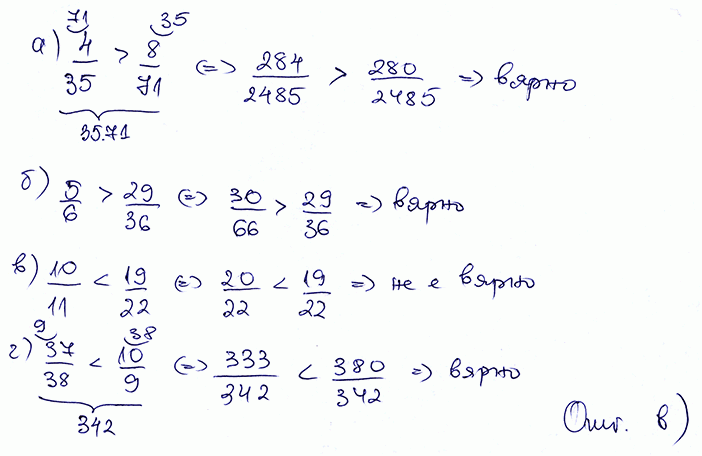 а) 71 4/35 > 35 8/71 <=> 284/2485 > 280/2485 => вярно
35.71
б) 5/6 > 29/36 <=> 30/66 > 29/36 => вярно
в) 10/11 < 19/22 <=> 20/22 < 19/22 => не е вярно
г) 9 37/38 < 38 10/9 <=> 333/342 < 380/342 => вярно
342
Отг. в)